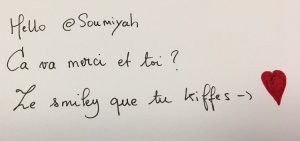 Hello @Soumiyah
Ca va merci et toi ?
Le smiley que tu kiffes ->